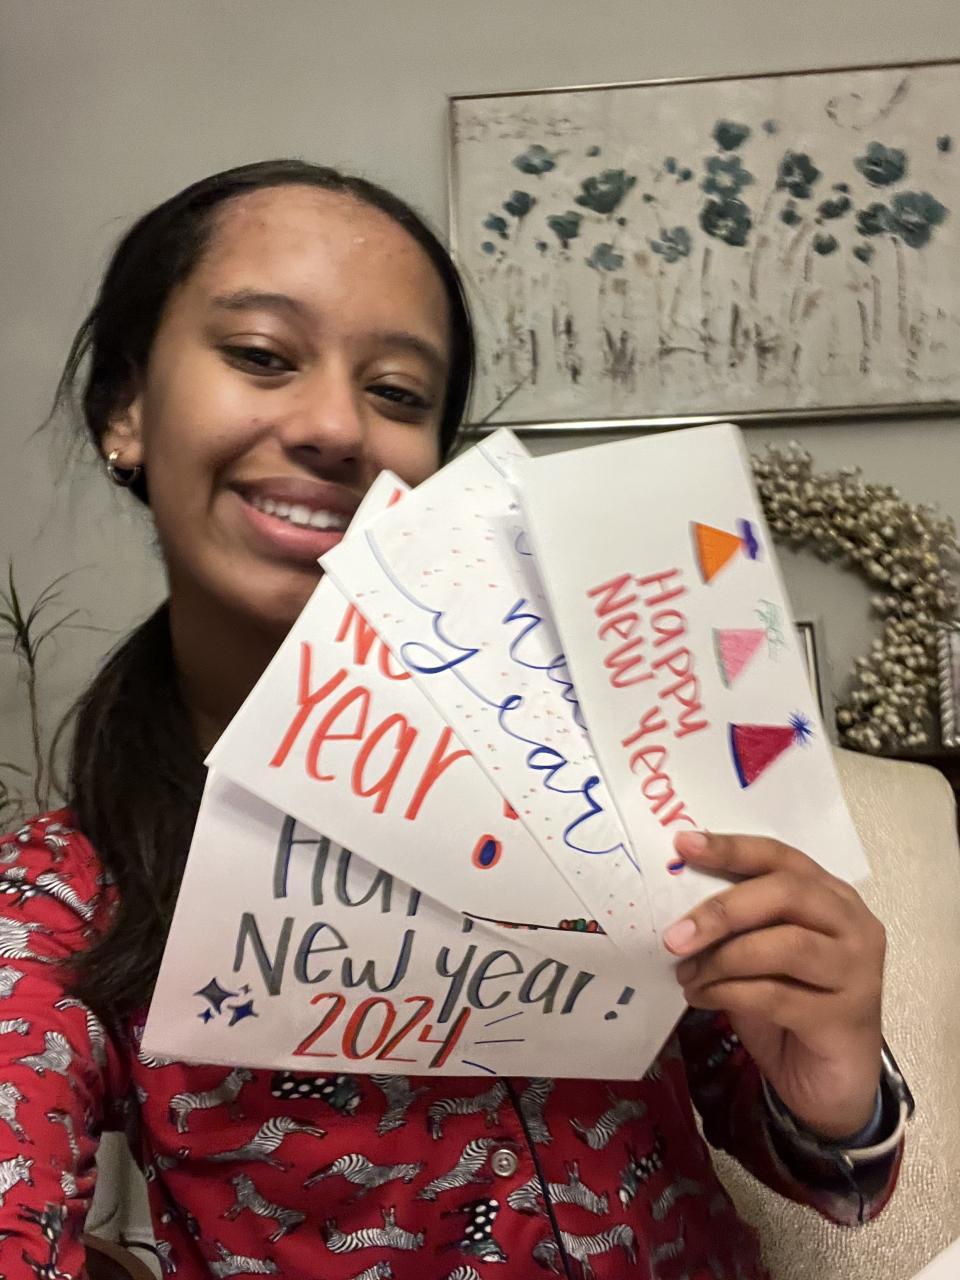 Happy
New Year!
new
year
Year!
New year!
2024